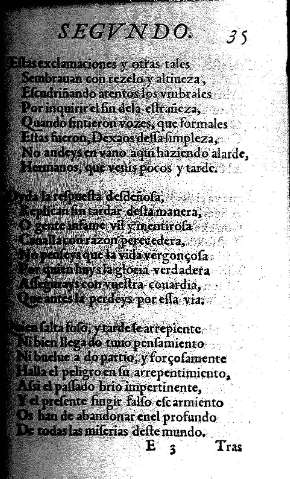 SEGVNDO. 35
Estas exclamaciones y otras tales
Sembrauan con rezelo y altineza,
Escudriñando atentos los vmbrales
Por inquirir el fin dela estrañeza,
Quando sintieron vozes, que formales
Estas fueron, Dexaos dessa simpleza,
No andeys en vano aqui haziendo alarde,
Hermanos, que venis pocos y tarde.
la respuesta desdeñosa,
Replican sin tardar desta manera,
O gente infame vil y mentirosa
Canalla con razon perecedera,
No penseys que la vida vergonçosa
Por quien huys la gloria verdadera
Assegurays con vuestra couardia,
Que antes la perdeys por essa via.
salta foso, y tarde se arrepiente
Ni bien llega do tuuo pensamiento
Ni buelue a do partio, y forçosamente
Halla el peligro en su arrepentimiento,
Assi el passado brio impertinente,
Y el presente fingir falso escarmiento
Os han de abandonar enel profundo
De todas las miserias deste mundo.
E 3 Tras